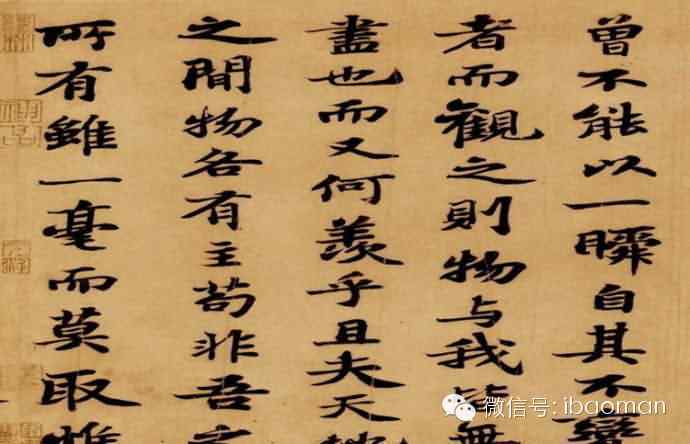 曾不能以一瞬自其不變
者而觀之則物與我皆無
盡也而又何羨乎且夫天地
之間物各有主苟非吾之
所有雖一毫而莫取惟
微信号: ibaoman